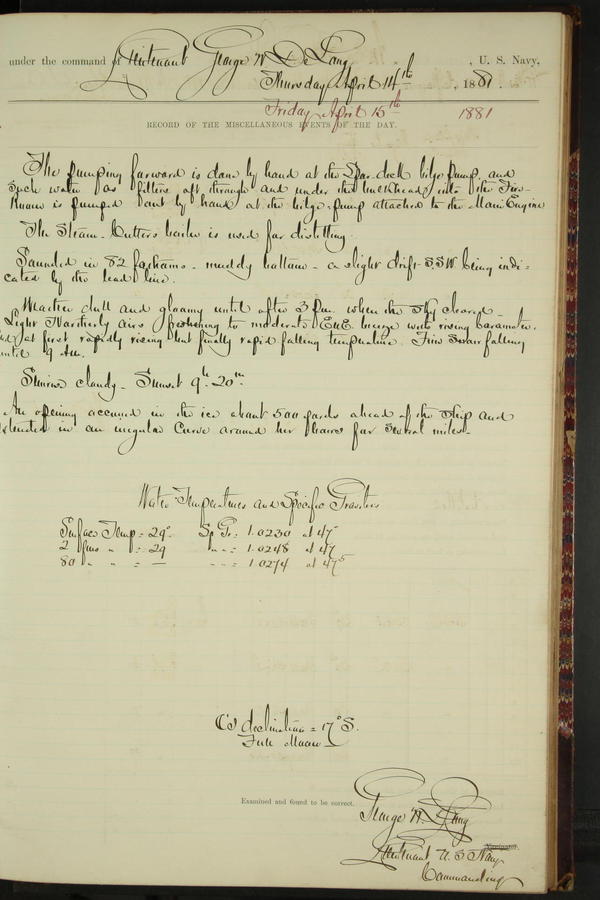 under the command of Lieutenant George W. De Long, U. S. Navy,
Thursday April 14th, 1881.
Friday April 15th 1881
RECORD OF THE MISCELLANEOUS EVENTS OF THE DAY.
The pumping forward is done by hand at the Spar-deck bilge pump and
Such water as filters aft through and under the bulkhead into the Fire-
Room is pumped out by hand at the bilge pump attached to the Main Engine
The Steam-Cutters boiler is used for distilling.
Sounded in 82 fathoms - muddy bottom - a slight drift S.S.W. being indi-
cated by the lead line.
Weather dull and gloomy until after 3 P.m. when the sky cleared -
Light Northerly airs freshening to moderate ENE breeze with rising barometer,
and at first rapidly rising but finally rapid falling temperature. Fine Snow falling
until 9 Am.
Sunrise cloudy - Sunset 9h. 20m.
An opening occurred in the ice about 500 yards ahead of the Ship and
extended in an irregular Curve around her bows for several miles.
Water Temperatures and Specific Gravities
Surface Temp = 29° Sp Gr = 1.0230 at 47°
2 fms " " = 29 " " = 1.0248 at 47
80 " " = — " " = 1.0274 at 47.5
C's declination = 17° S.
Full Moon
Examined and found to be correct.
George W. De Long
Navigator.
Lieutenant U. S. Navy
Commanding